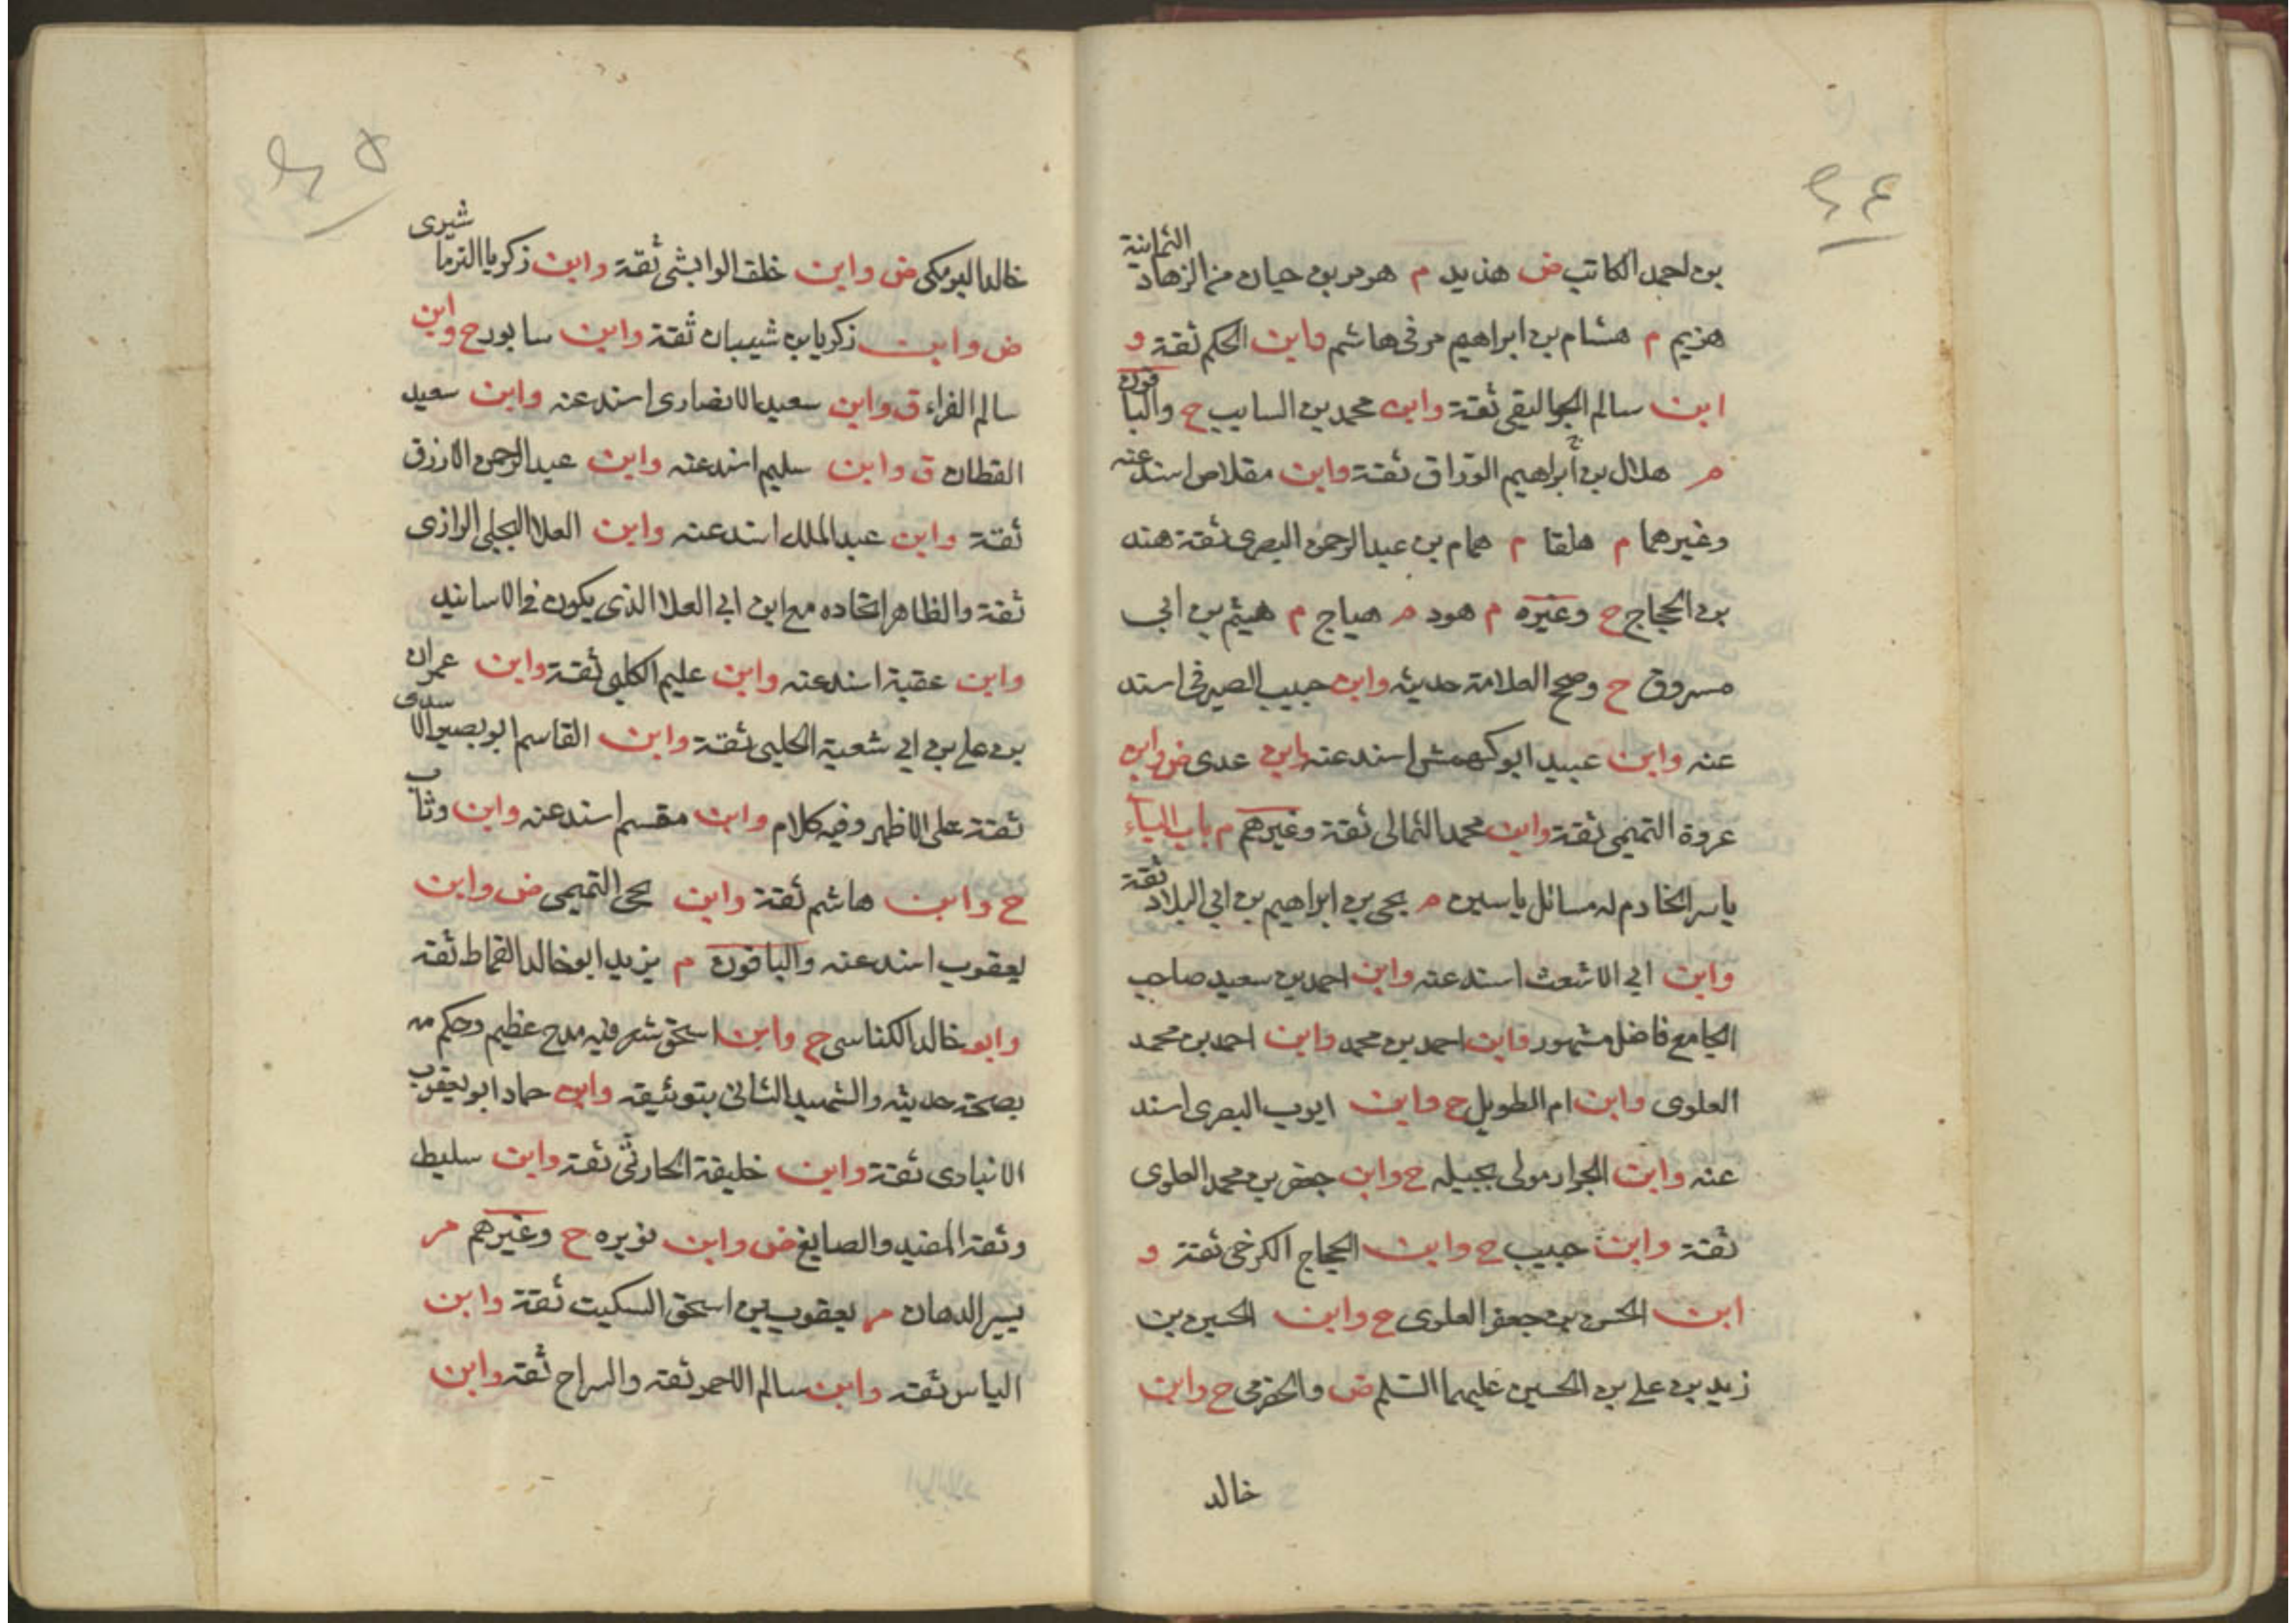 ٢٤
بن احمد الكاتب ض هذيد م هرم بن حيان من الزهاد الثمانية
هزيم م هشام بن ابراهيم مر في هاشم وابن الحكم ثقة و
ابن سالم الجواليقى ثقة وابن محمد بن السايب ح والباقون
م هلال بن ابراهيم الوراق ثقة وابن مقلاص اسند عنه
وغيرهما م هلقا م همام بن عبد الرحمن البصرى ثقة هند
بن الحجاج ح وغيره م هود م هياج م هيثم بن ابى
مسروق ح وصحح العلامة حديثه وابن حبيب الصيرفى اسند
عنه وابن عبيد ابو كهمش اسند عنه وابن عدى ض وابن
عروة التميمى ثقة وابن محمد الثمالى ثقة وغيرهم م باب الياء
ياسر الخادم له مسائل ياسين م يحيى بن ابراهيم بن ابى البلاد ثقة
وابن ابى الاشعث اسند عنه وابن احمد بن سعيد صاحب
الجامع فاضل مشهور وابن احمد بن محمد وابن احمد بن محمد
العلوى وابن ام الطويل ح وابن ايوب البصرى اسند
عنه وابن الجرار مولى بجيله ح وابن جعفر بن محمد العلوى
ثقة وابن حبيب ح وابن الحجاج الكرخى ثقة و
ابن الحسن بن جعفر العلوى ح وابن الحسين بن
زيد بن على بن الحسين عليهما السلم ض والحزمى ح وابن
خالد
٢٥
خالد البومكى ض وابن خلف الوابشى ثقة وابن زكريا الترماشيرى
ض وابن زكريا بن شيبان ثقة وابن سابور ح وابن
سالم الفراء ق وابن سعيد الانصارى اسند عنه وابن سعيد
القطان ق وابن سليم اسند عنه وابن عبد الرحمن الازرق
ثقة وابن عبد الملك اسند عنه وابن العلا البجلى الرازى
ثقة والظاهر اتحاده مع ابن ابى العلا الذى يكون فى الاسانيد
وابن عقبة اسند عنه وابن عليم الكلبى ثقة وابن عمران
بن على بن ابى شعبة الحلبى ثقة وابن القاسم ابو بصير الاسدى
ثقة على الاظهر وفيه كلام وابن مقسم اسند عنه وابن وثاب
ح وابن هاشم ثقة وابن يحيى التميمى ض وابن
يعقوب اسند عنه والباقون م يزيد ابو خالد القماط ثقة
وابو خالد الكناسى ح وابن اسحق شعر فيه مدح عظيم وحكم مه
بصحة حديثه والشهيد الثانى بتوثيقه وابن حماد ابو يعقوب
الانبارى ثقة وابن خليفة الحارثى ثقة وابن سليط
وثقه المفيد والصايغ ض وابن نويره ح وغيرهم م
يسير الدهان م يعقوب بن اسحق السكيت ثقة وابن
الياس ثقه وابن سالم الاحمر ثقه والسراج ثقه وابن